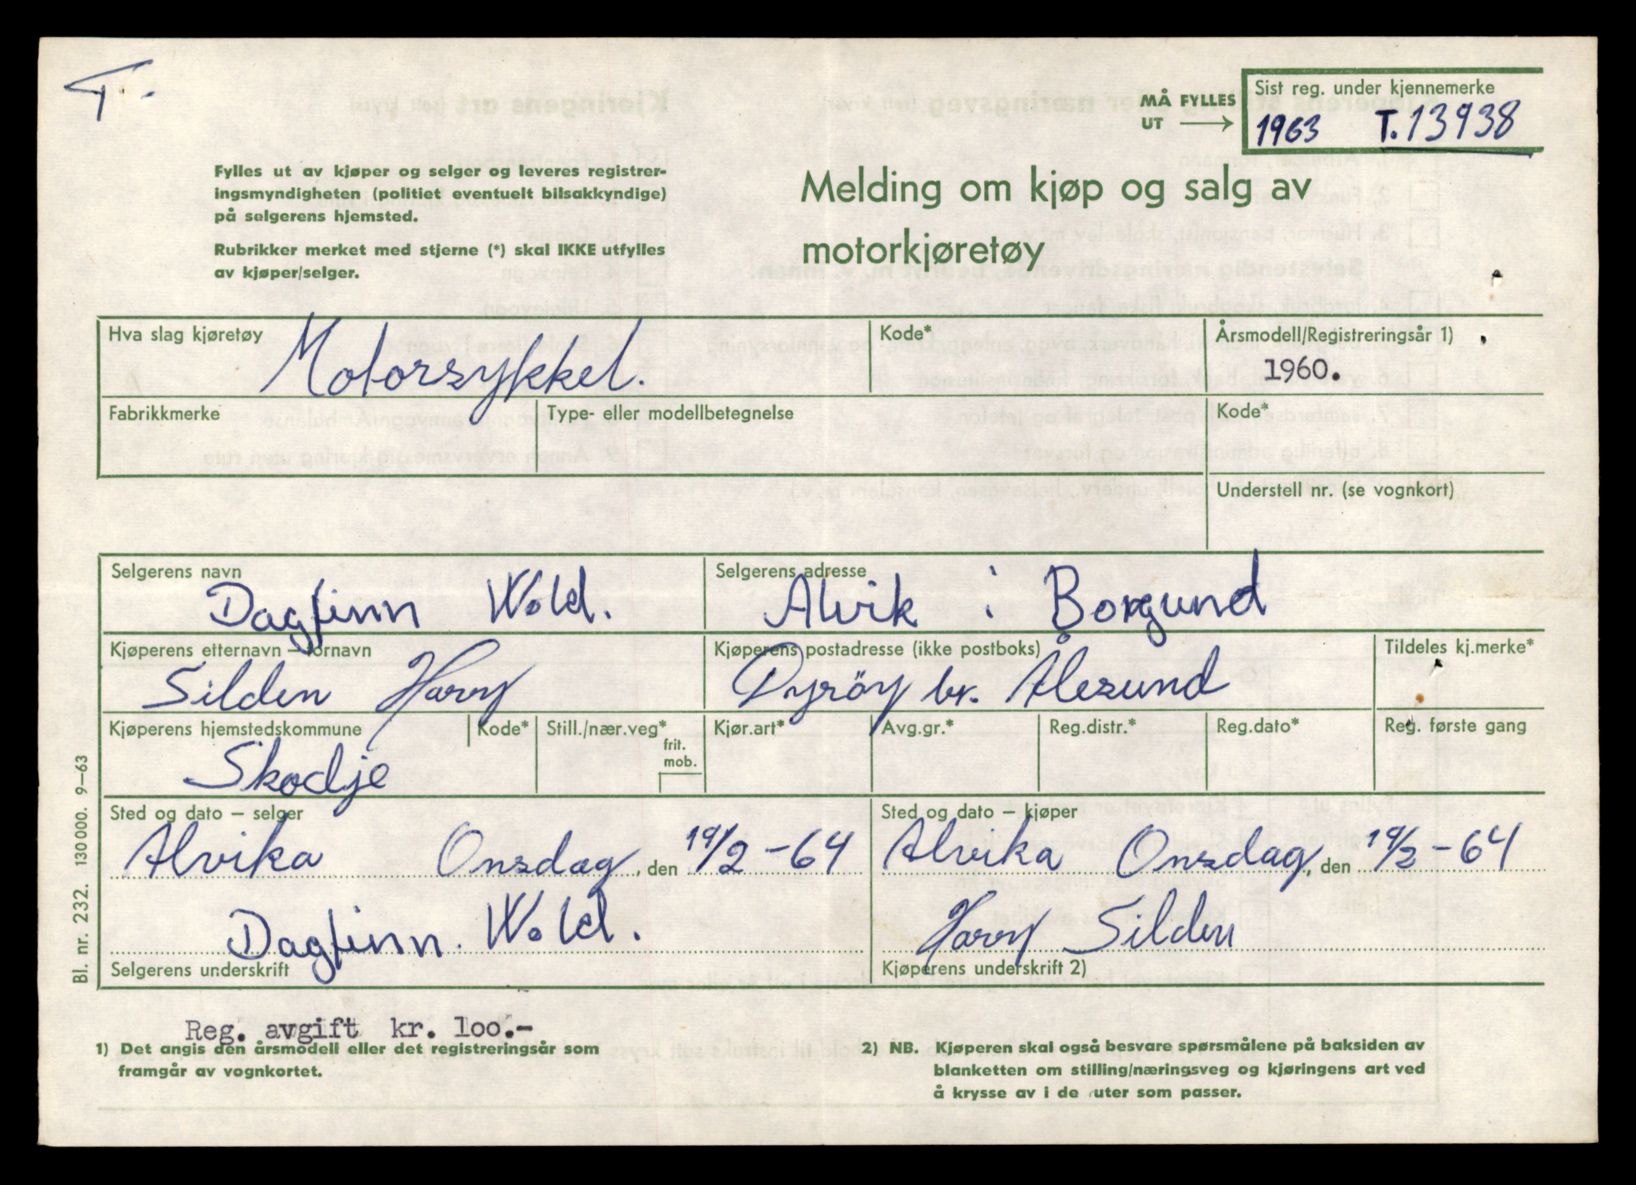 T.
MÅ FYLLES UT →
Sist reg. under kjennemerke
1963 T.13938
Fylles ut av kjøper og selger og leveres registrer-
ingsmyndigheten (politiet eventuelt bilsakkyndige)
på selgerens hjemsted.
Rubrikker merket med stjerne (*) skal IKKE utfylles
av kjøper/selger.
Melding om kjøp og salg av
motorkjøretøy
Hva slag kjøretøy
Motorsykkel.
Kode*
Årsmodell/Registreringsår 1)
1960.
Fabrikkmerke
Type- eller modellbetegnelse
Kode*
Understell nr. (se vognkort)
Selgerens navn
Dagfinn Wold.
Selgerens adresse
Alvik i Borgund
Kjøperens etternavn – fornavn
Silden Harry
Kjøperens postadresse (ikke postboks)
Dyröy br. Ålesund
Tildeles kj.merke*
Kjøperens hjemstedskommune
Skodje
Kode*
Still./nær.veg*
frit.
mob.
Kjør.art*
Avg.gr.*
Reg.distr.*
Reg.dato*
Reg. første gang
Sted og dato – selger
Alvika Onsdag, den 19/2 -64
Dagfinn. Wold.
Selgerens underskrift
Sted og dato – kjøper
Alvika Onsdag, den 19/2 -64
Harry Silden
Kjøperens underskrift 2)
Bl. nr. 232. 130 000. 9–63
Reg. avgift kr. 100.-
1) Det angis den årsmodell eller det registreringsår som
framgår av vognkortet.
2) NB. Kjøperen skal også besvare spørsmålene på baksiden av
blanketten om stilling/næringsveg og kjøringens art ved
å krysse av i de ruter som passer.